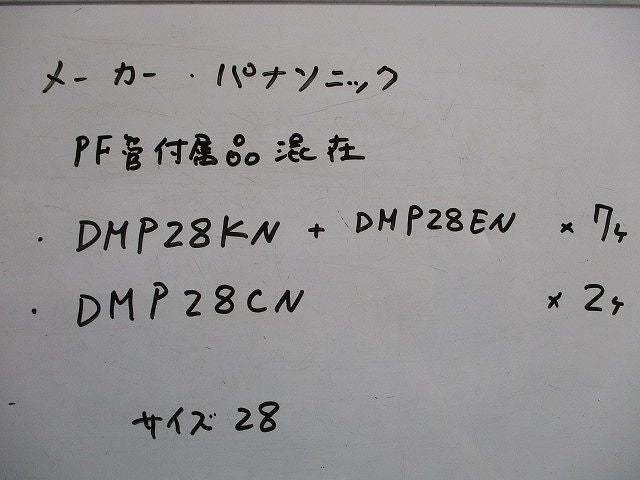 メーカー・パナソニック
PF管付属品混在
・DMP28KN + DMP28EN × 7ケ
・DMP28CN × 2ケ
サイズ 28